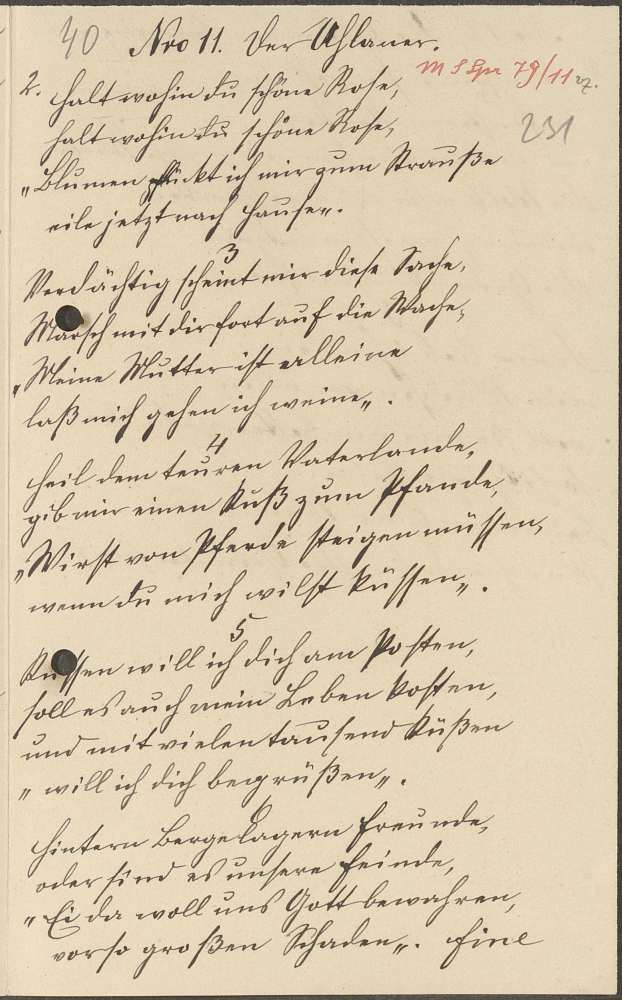 40 Nro 11. Der Uhlaner.
M S Spr 79/11 27.
231
2. Halt wohin du schöne Rose,
halt wohin du schöne Rose,
"Blumen pflückt ich mir zum Strauße
eile jetzt nach Hause„.
3
Verdächtig scheint mir diese Sache,
Marsch mit dir fort auf die Wache,
„Meine Mutter ist alleine
laß mich gehen ich weine„.
4
Heil dem teuren Vaterlande,
gib mir einen Kuß zum Pfande,
„Wirst von Pferde steigen müssen,
wenn du mich wilst küssen„.
5
Küssen will ich dich am Posten,
soll es auch mein Leben kosten,
und mit vielen tausend Küßen
„will ich dich begrüßen„.
6
Hintern Berge lagern Freunde,
oder sind es unsere Feinde,
„Ei da woll uns Gott bewahren,
vor so großen Schaden„. Eine